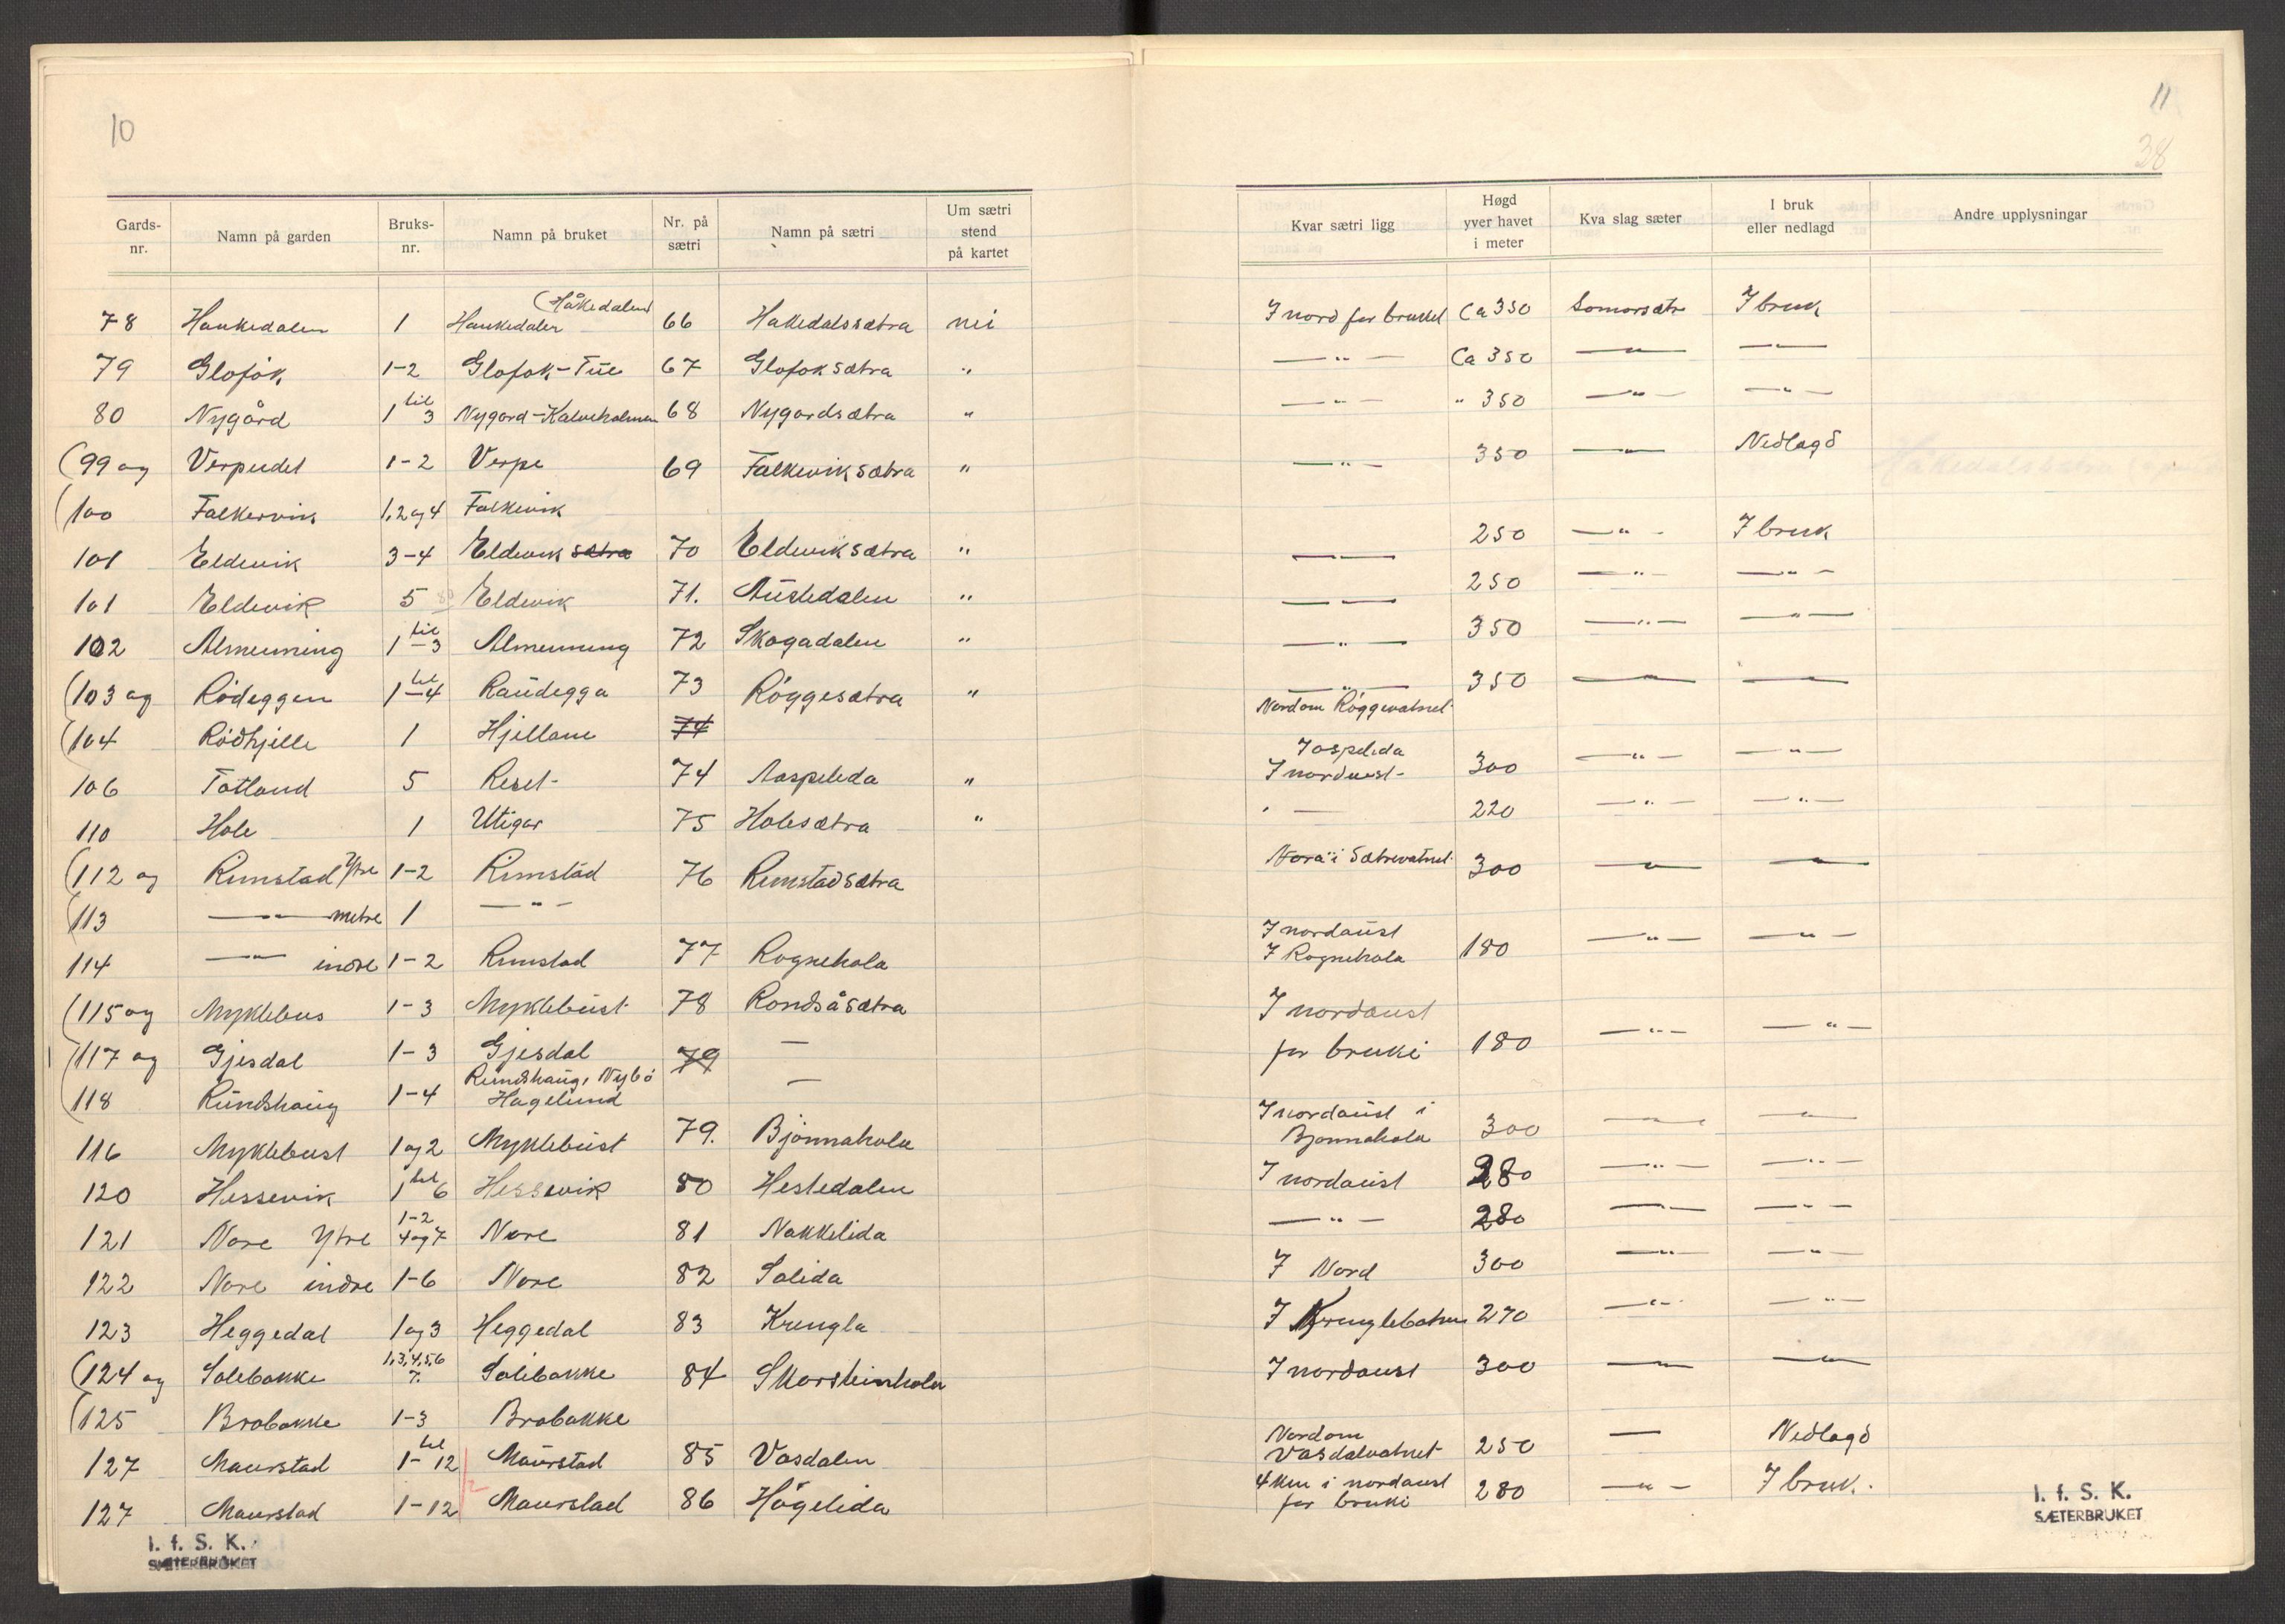 10
Gards-nr. | Namn på garden | Bruks-nr. | Namn på bruket | Nr. på sætri | Namn på sætri | Um sætri stend på kartet
78 | Haukedalen | 1 | Haukedalen (Håkedalen) | 66 | Hakedalssætra | nei
79 | Glofok | 1-2 | Glofok-Tue | 67 | Glofoksætra | "
80 | Nygård | 1 til 3 | Nygard-Kalveholmen | 68 | Nygardsætra | "
(99 og | Verpeidet | 1-2 | Verpe | 69 | Falkeviksætra | "
(100 | Falkervik | 1,2 og 4 | Falkevik
101 | Eldevik | 3-4 | Eldevik sætra | 70 | Eldeviksætra | "
101 | Eldevik | 5 | Eldevik | 71. | Austedalen | "
102 | Almenning | 1 til 3 | Almenning | 72 | Skogadalen | "
(103 og | Rødeggen | 1 til 4 | Raudegga | 73 | Røggesætra | "
(104 | Rødhjelle | 1 | Hjellane | 74
106 | Totland | 5 | Reset | 74 | Aaspelida | "
110 | Hole | 1 | Utigar | 75 | Holesætra | "
(112 og | Rimstad Ytre | 1-2 | Rimstad | 76 | Rimstadsætra
(113 | —"— metre | 1 | —"—
114 | —"— indre | 1-2 | Rimstad | 77 | Rognehola
(115 og | Myklebus | 1-3 | Myklebust | 78 | Rondsåsætra
(117 og | Gjesdal | 1-3 | Gjesdal | 79 | —
(118 | Rundshaug | 1-4 | Rundshaug, Nybø Hagelund | —
116 | Myklebust | 1 og 2 | Myklebust | 79. | Bjønnahola
120 | Hessevik | 1 til 6 | Hessevik | 80 | Hestedalen
121 | Nore Ytre | 1-2 4 og 7 | Nore | 81 | Nakkelida
122 | Nore indre | 1-6 | Nore | 82 | Solida
123 | Heggedal | 1 og 3 | Heggedal | 83 | Krengla
(124 og | Solebakke | 1,3,4,5,6 7. | Solibakke | 84 | Skorsteinholen
(125 | Brobakke | 1-3 | Brobakke
127 | Maurstad | 1- til 12 | Maurstad | 85 | Vasdalen
127 | Maurstad | 1-12 | Maurstad | 86 | Høgelida
I. f. S. K.
SÆTERBRUKET
11
38
Kvar sætri ligg | Høgd yver havet i meter | Kva slag sæter | I bruk eller nedlagd | Andre upplysningar
I nord for bruket | Ca 350 | Somorsætr | I bruk
—"— | Ca 350 | —"— | —"—
—"— | " 350 | —"— | —"—
—"— | 350 | —"— | Nedlagd
—"— | 250 | —"— | I bruk
—"— | 250 | —"— | —"—
—"— | 350 | —"— | —"—
—"— | 350 | —"— | —"—
Nordom Røggevatnet
I ospelida
I nordvest | 300 | —"— | —"—
"— | 220 | —"— | —"—
Nora i Sætrevatnet | 300 | —"— | —"—
I nordaust
I Rognehola | 180 | —"— | —"—
I nordaust
for bruki | 180 | —"— | —"—
I nordaust i
Bjønnahola | 300 | —"— | —"—
I nordaust | 280 | —"— | —"—
—"— | 280 | —"— | —"—
I Nord | 300 | —"— | —"—
I Krenglebotnen | 270 | —"— | —"—
I nordaust | 300 | —"— | —"—
Nordom
Vasdalvatnet | 250 | — | Nedlagd
4 km i nordaust
for bruki | 280 | —"— | I bruk.
I. f. S. K.
SÆTERBRUKET